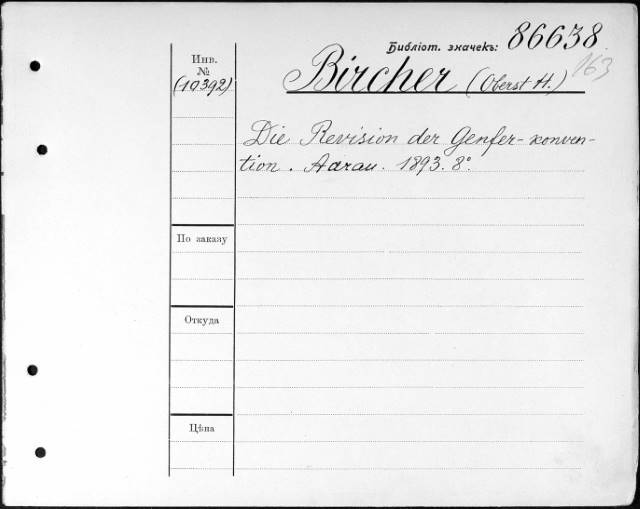 Библіот. значекъ: 86638
163
Инв.
№
(10392)
Bircher (Oberst H.)
Die Revision der Genfer-konven-
tion. Aarau. 1893. 8°.
По заказу
Откуда
Цѣна